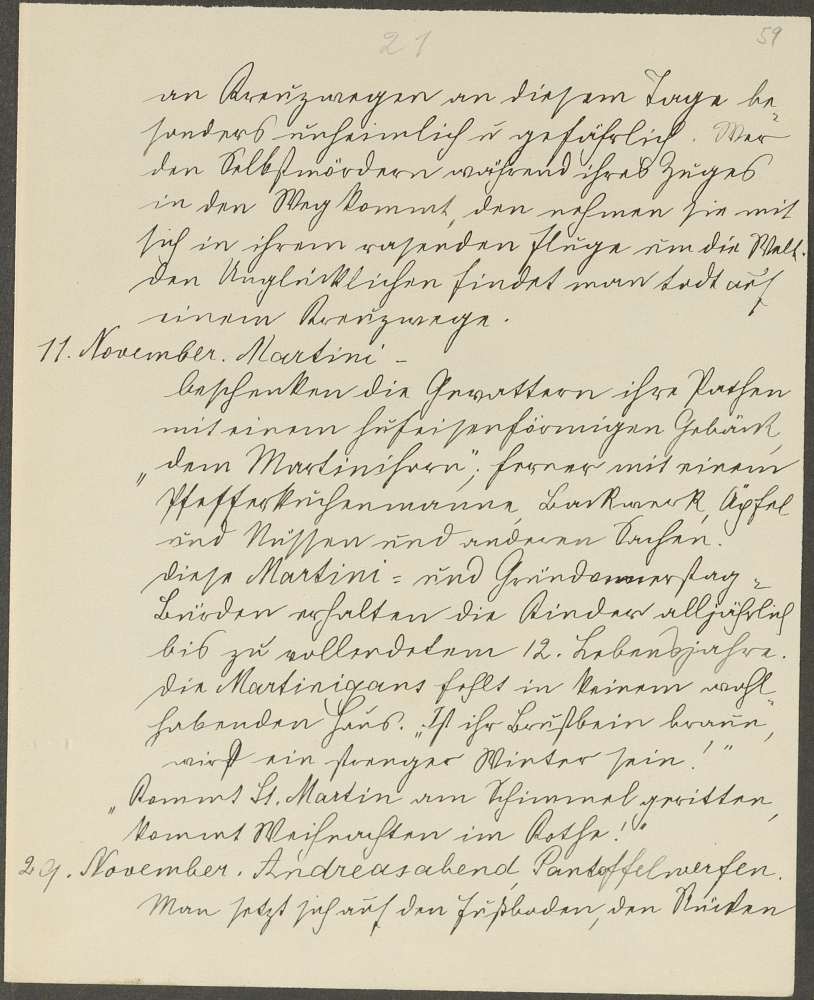 21
59
an Kreuzwegen an diesem Tage be-
sonders unheimlich u gefährlich. Wer
den Selbstmördern während ihres Zuges
in den Weg kommt, den nehmen sie mit
sich in ihrem rasenden Fluge um die Welt.
Den Unglücklichen findet man todt auf
einem Kreuzwege.
11. November. Martini -
beschenken die Gevattern ihre Pathen
mit einem hufeisenförmigen Gebäck,
"dem Martinihorn"; ferner mit einem
Pfefferkuchenmanne, Backwerk, Äpfel
und Nüssen und anderen Sachen.
Diese Martini- und Gründonnerstag-
Bürden erhalten die Kinder alljährlich
bis zu vollendetem 12. Lebensjahre.
Die Martinigans fehlt in keinem wohl-
habenden Haus. "Ist ihr Brustbein braun,
wird ein strenger Winter sein!"
"Kommt St. Martin am Schimmel geritten,
kommt Weihnachten im Kothe!"
29. November. Andreasabend, Pantoffelwerfen.
Man setzt sich auf den Fußboden, den Rücken